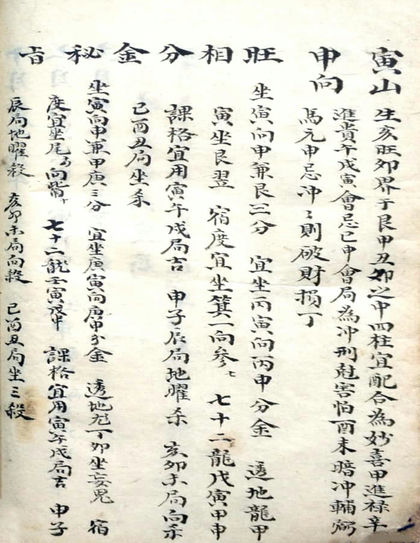 寅山 生亥旺卯界于艮甲丑卯之中四柱宜配合為妙喜甲進禄辛
申向 進貴午戌寅會忌巳申會局為冲刑尅害怕酉未暗冲輔弼
馬元申忌冲冲則破財損丁
旺相分金秘旨
坐寅向申兼艮三分 宜坐丙寅向丙申分金 透地龍甲
寅坐艮翌 宿度宜坐箕一向參七 七十二龍戊寅甲申
課格宜用寅午戌局吉 申子辰局地曜杀 亥卯未局向杀
巳酉丑局坐杀
坐寅向申兼甲庚三分 宜坐庚寅向庚申分金 透地龙丁卯坐 宿
度宜坐尾 向觜 七十二龍壬寅戊申 課格宜用寅午戌局吉 申子
辰局地曜殺 亥卯未局向殺 巳酉丑局坐三殺